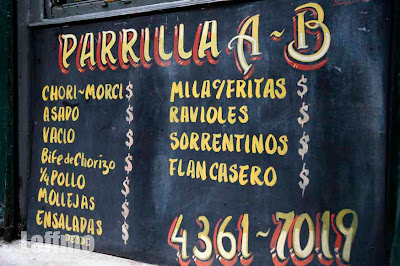 PARRILLA A-B
CHORI-MORCIS $
ASADO $
VACIO $
Bife de Chorizo $
1/4 POLLO $
MOLLEJAS $
ENSALADAS $
MILA C/FRITAS $
RAVIOLES $
SORRENTINOS $
FLAN CASERO $
4361-7019